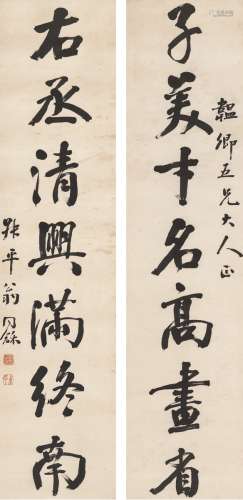 韞卿五兄大人正
子美才名高畫省
右丞清興滿終南
叔平翁同龢